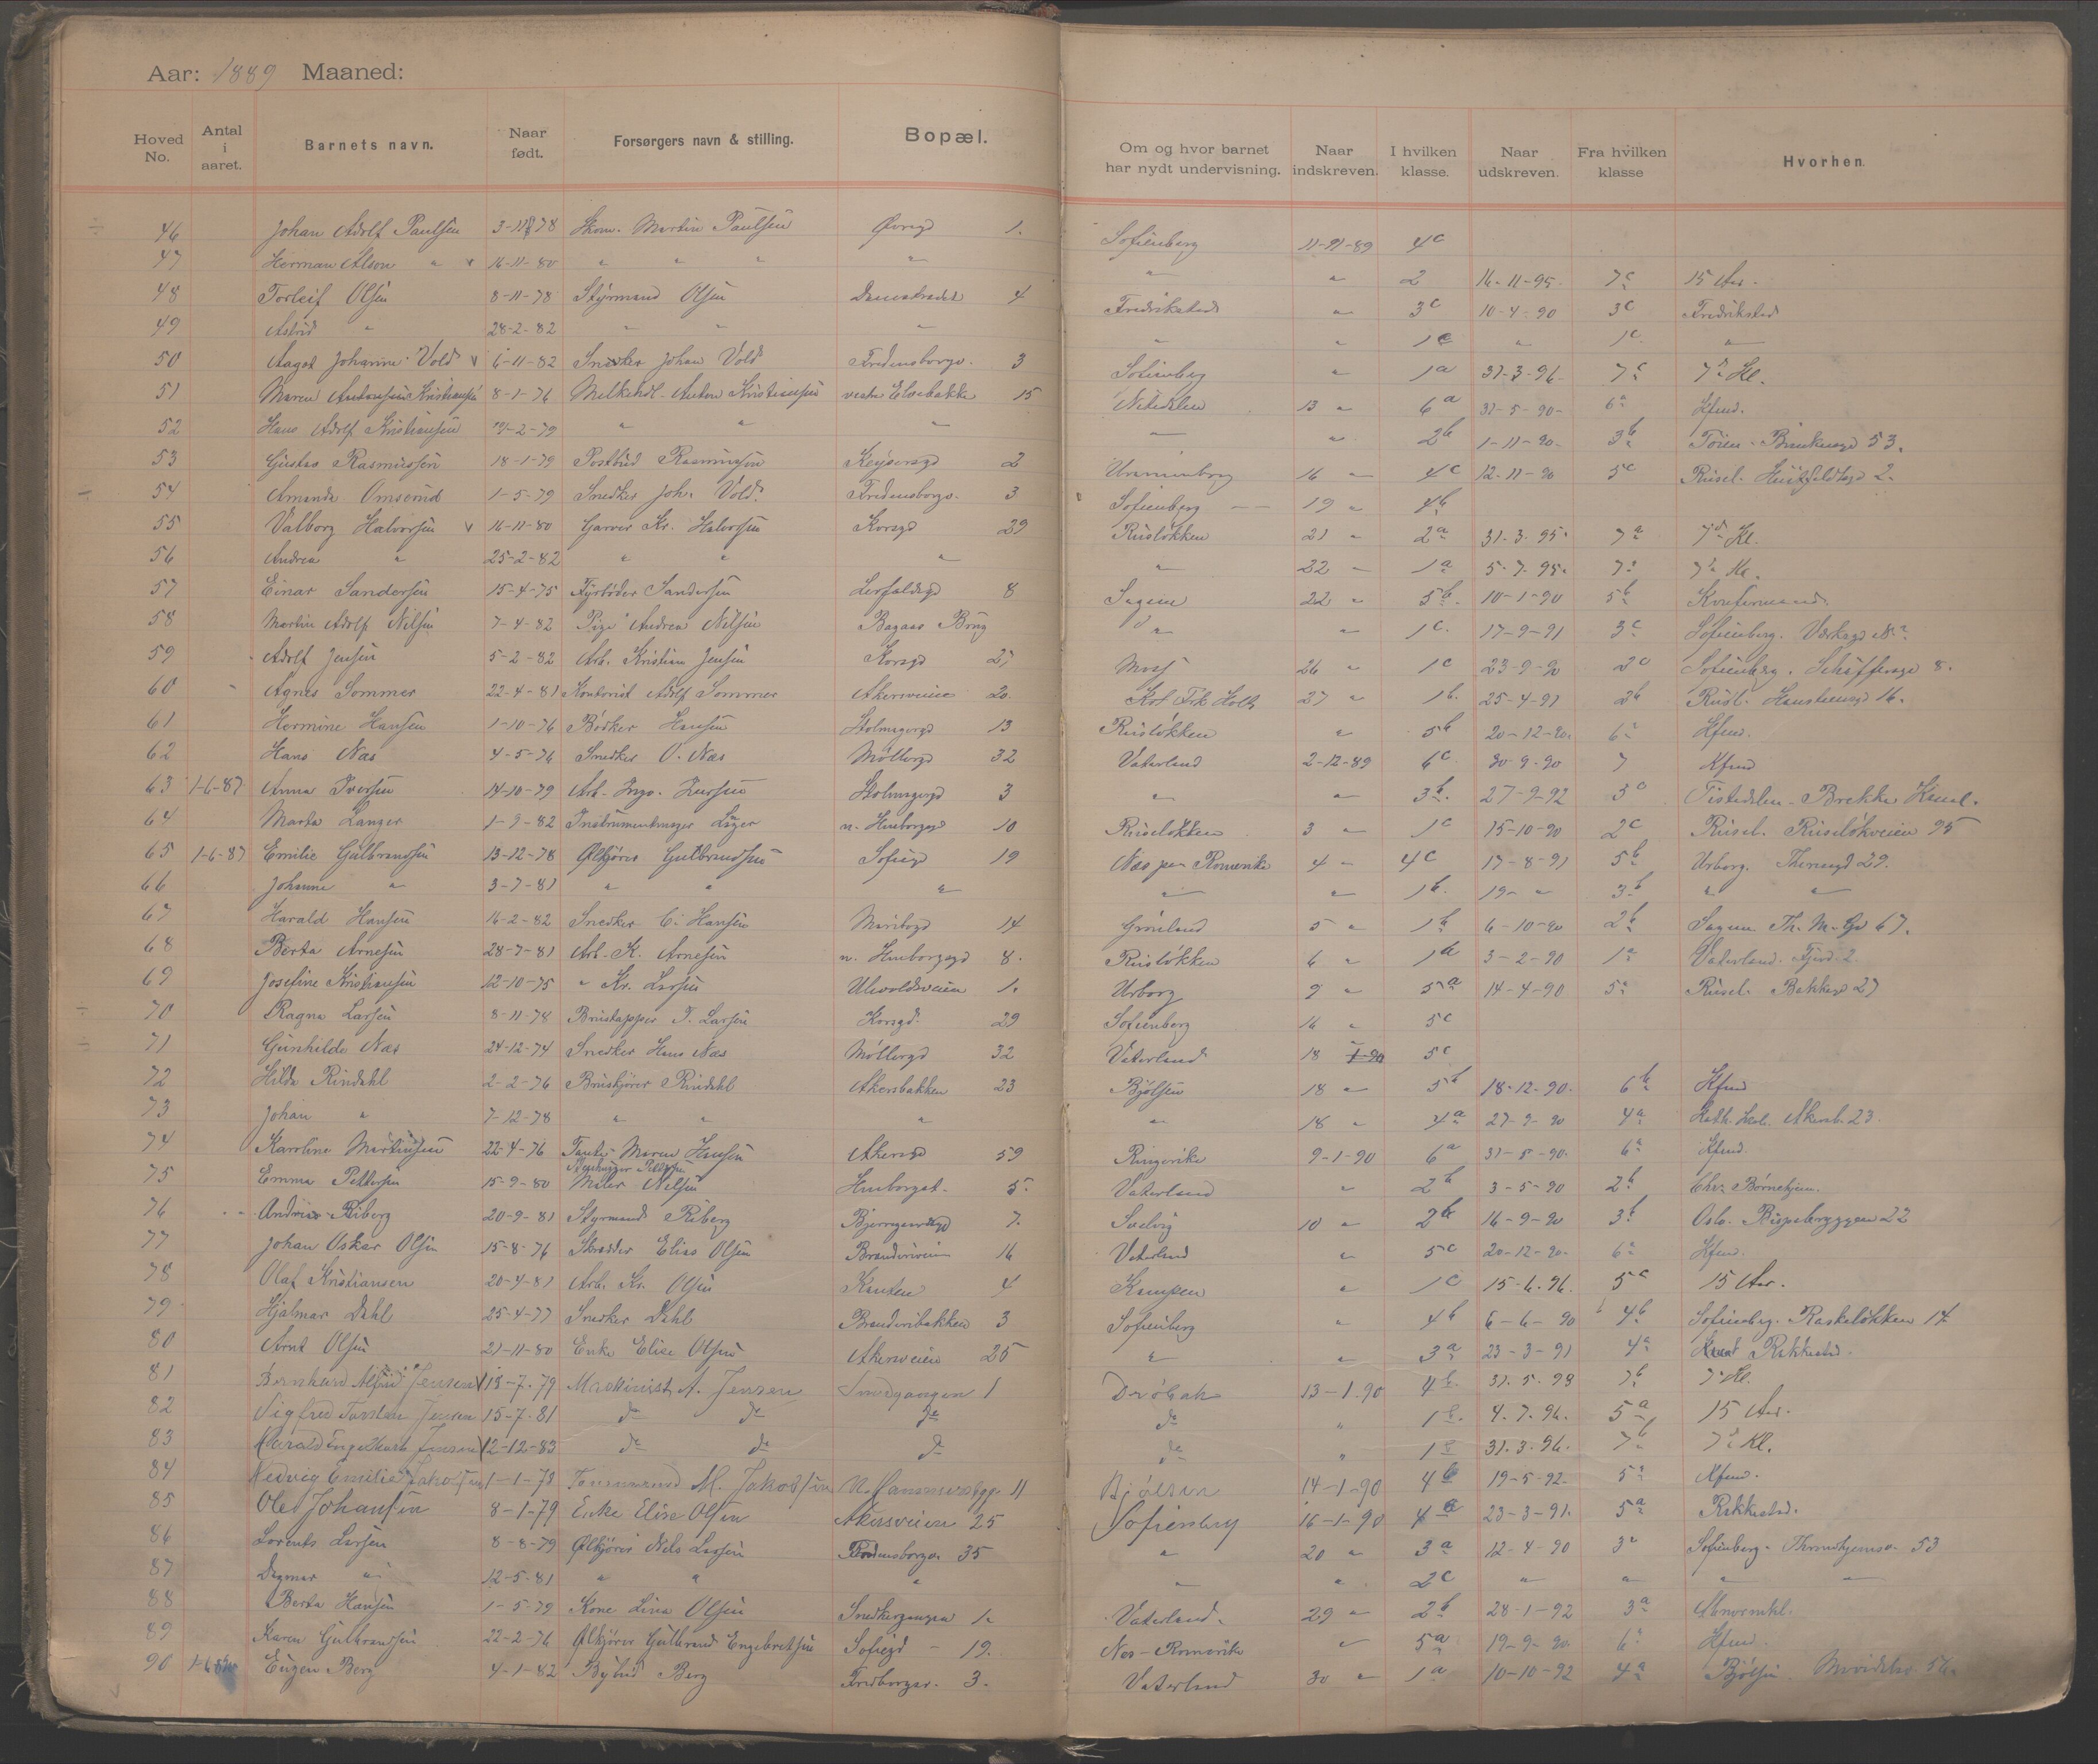 Aar: 1889 Maaned:
Hoved No. Antal i aaret. Barnets navn. Naar født. Forsørgers navn & stilling. Bopæl. Om og hvor barnet har nydt undervisning. Naar indskreven. I hvilken klasse. Naar udskreven. Fra hvilken klasse Hvorhen.
46 Johan Adolf Paulsen 3-11-78 Skom. Martin Paulsen 1. Sofienberg 11-11-89 4c
47 Herman Alson " v 16-11-80 " " " " " " 2 16-11-95. 7c 15 Aar.
48 Torleif Olsen 8-11-78 Styrmand Olsen 4 Fredrikstad " 3c 10-4-90 3c Fredrikstad
49 Astrid " 28-2-82 " " " " " 1c " 1c "
50 Aagot Johanne Vold v 6-11-82 Snedker Johan Vold Fredensborgv. 3 Sofienberg " 1a 31-3-96. 7c 7d Kl.
51 Maren Kristiansen 8-1-76 Melkehdl. Anton Kristiansen vestre Elvebakke 15 13 " 6a 31-5-90- 6a Kfmd.
52 Hans Adolf Kristiansen 19-2-79 " " " " " 2b 1-11-90- 3b Tøien 53.
53 Gustav Rasmussen 18-1-79 Postbud Rasmussen Keysersgd 2 Uranienborg 16 " 4c 12-11-90 5c Rusel. Huitfeldtsgd 2.
54 Amanda Omsund 1-5-79 Snedker Joh. Vold. Fredensborgv. 3 Sofienberg 19 " 4b
55 Valborg Halvorsen v 16-11-80 Garver Kr. Halvorsen Korsgd 29 Rusløkken 21 " 2a 31-3-95. 7a 7d Kl.
56 Andrea " 25-2-82 " " " " 22 " 1a 5-7-95. 7a 7a Kl.
57 Einar Sandersen 15-4-75 Fyrbøder Sandersen 8 Sagene 22 " 5b. 10-1-90 5b Konfirmand.
58 Martin Adolf Nilsen 7-4-82 Pige Andrea Nilsen Bagaas Brug " " 1c. 17-9-91 3c Sofienberg.
59 Adolf Jensen 5-2-82 Arb. Kristian Jensen Korsgd 27 Moss 26 " 1c 23-9-90 2c Sofienberg. 8.
60 Agnes Sommer 22-4-81 Kontorist Adolf Sommer Akersveien 20. Frk Holth 27 " 1b. 25-4-91 2b Rusl. 16.
61 Hermine Hansen 1-10-76 Bødker Hansen Holmsgd 13 Rusløkken " 5b 20-12-90. 6a Kfmd.
62 Hans Næs 4-5-76 Snedker O. Næs Møllergd 32 Vaterland 2-12-89 6c 30-9-90 7 Kfmd
63 1-6-87 Anna Iversen 14-10-79 Arb. Iversen Holmsgd 3 " " 3b. 27-9-92 3c Tistedalen - Brekke Kanal.
64 Marta Langer 1-9-82 Instrumentmager n. Humborgd 10 Ruseløkken 3 " 1c 15-10-90 2c Rusel. Ruseløkveien 95
65 1-6-87 Emilie Gulbrandsen 13-12-78 Ølkjører Gulbrandsen Sofiegd 19 Næs paa Romerike 4 " 4c 17-8-91 5b Urborg. 29.
66 Johanne " 3-7-81 " " " " " 1b. 19- " 3b " "
67 Harald Hansen 16-2-82 Snedker C. Hansen Maribogd 14 Grønland 5 " 1b 6-10-90 2b Sagene Th. M. Gd 67.
68 Berta Arnesen 28-7-81 Arb. K. Arnesen n. 8. Rusløkken 6 " 1a 3-2-90 1a Vaterland. 2.
69 Josefine Kristiansen 12-10-75 " Kr. Larsen Ulevoldsveien 1. Urborg 9 " 5a 14-4-90 5a Rusel. Bakkegd 27
70 Ragna Larsen 8-11-78 Brustapper T. Larsen Korsgd. 29 Sofienberg 16 " 5c
71 Gunhilde Næs 24-12-74 Snedker Hans Næs Møllergd 32 Vaterland 18 1-90 5c
72 Hilda Rindahl 2-2-76 Bruskjører Rindahl Akersbakken 23 Bjølsen 18 " 5b 18-12-90. 6b Kfmd
73 Johan " 7-12-78 " " " " 18 " 4a 27-9-90 4a Kath. Skol. Akersb. 23.
74 Karoline Martinsen 22-4-76 Tante Maren Hansen Akersgd 59 Ringerike 9-1-90 6a 31-5-90. 6a Kfmd.
75 Emma Pettersen 15-9-80 Maler Nilsen 5. Vaterland " 2b 3-5-90 2b Chra Børnehjem.
76 Andrias Riberg 20-9-81 Styrmand Riberg Bjerregaardsgd 7. Svelvig 10 " 2b 16-9-90 3b Oslo. Bispebryggen 22
77 Johan Oskar Olsen 15-8-76 Skrædder Elias Olsen 16 Vaterland " 5c 20-12-90. 6a Kfmd.
78 Olaf Kristiansen 20-4-81 Arb. Kr. Olsen Kanten 4 Kampen " 1c 15-6-96. 5c 15 Aar.
79 Hjalmar Dahl 25-4-77 Snedker Dahl Brenneribakken 3 Sofienberg " 4b 6-6-90 4b Sofienberg. Raskeløkken 14
80 Arnt Olsen 21-11-80 Enke Elise Olsen Akersveien 25 " " 3a 23-3-91 4a Rakkestad.
81 Bernhard Alfred Jensen v 18-7-79 Maskinist A. Jensen Smedgangen 1 Drøbak 13-1-90 4b. 31.5.93 7b 7 Kl.
82 Sigfred Torstein Jensen 15-7-81 do do do do " 1b. 4.7.96. 5a 15 Aar.
83 Harald Engelhart Jensen v 12-12-83 do do do do " 1b 31.3.96. 7b 7d Kl.
84 Hedvig Emilie Jakobsen 1-1-78 Tømmermand M. Jakobsen 11 Bjølsen 14-1-90 4b 19-5-92. 5a Kfmd.
85 Ole Johansen 8-1-79 Enke Elise Olsen Akersveien 25 Sofienberg 16-1-90 4a 23-3-91. 5a Rakkestad.
86 Lorents Larsen 8-8-79 Ølkjører Nils Larsen Fredensborgv. 35 " 20 " 3a 12-4-90 3a Sofienberg - Throndhjemsv. 53
87 Dagmar " 12-5-81 " " " " " 2c " " " "
88 Berta Hansen 1-5-79 Kone Lina Olsen Snedkergangen 1. Vaterland. 29 " 2b 28-1-92 3a Abnormkl.
89 Karen Gulbrandsen 22-2-76 Ølkjører Gulbrand Engebretsen Sofiegd - 19. Nes - Romerike " 5a 19-9-90 6a Kfmd.
90 Eugen Berg 4-1-82 Bybud Berg Fredborgv. 3. Vaterland 30 " 1a 10-10-92 4a Bjølsen